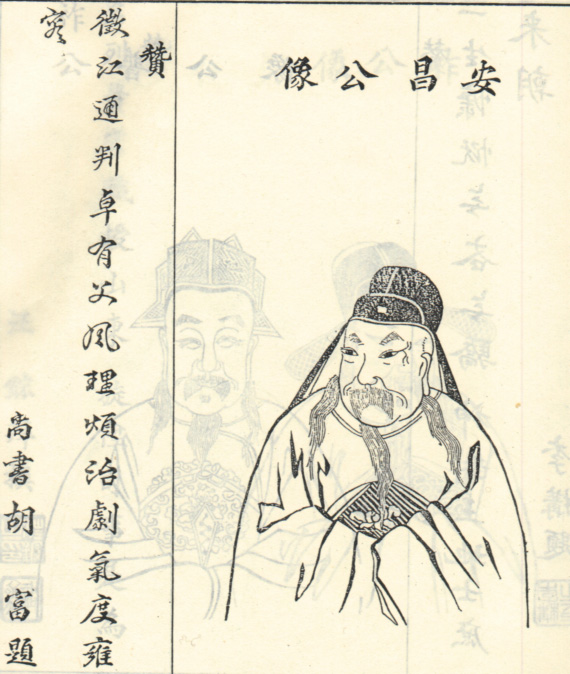 安昌公像
贊
徵江通判卓有父風理煩治劇氣度雍
容
尚書胡富題